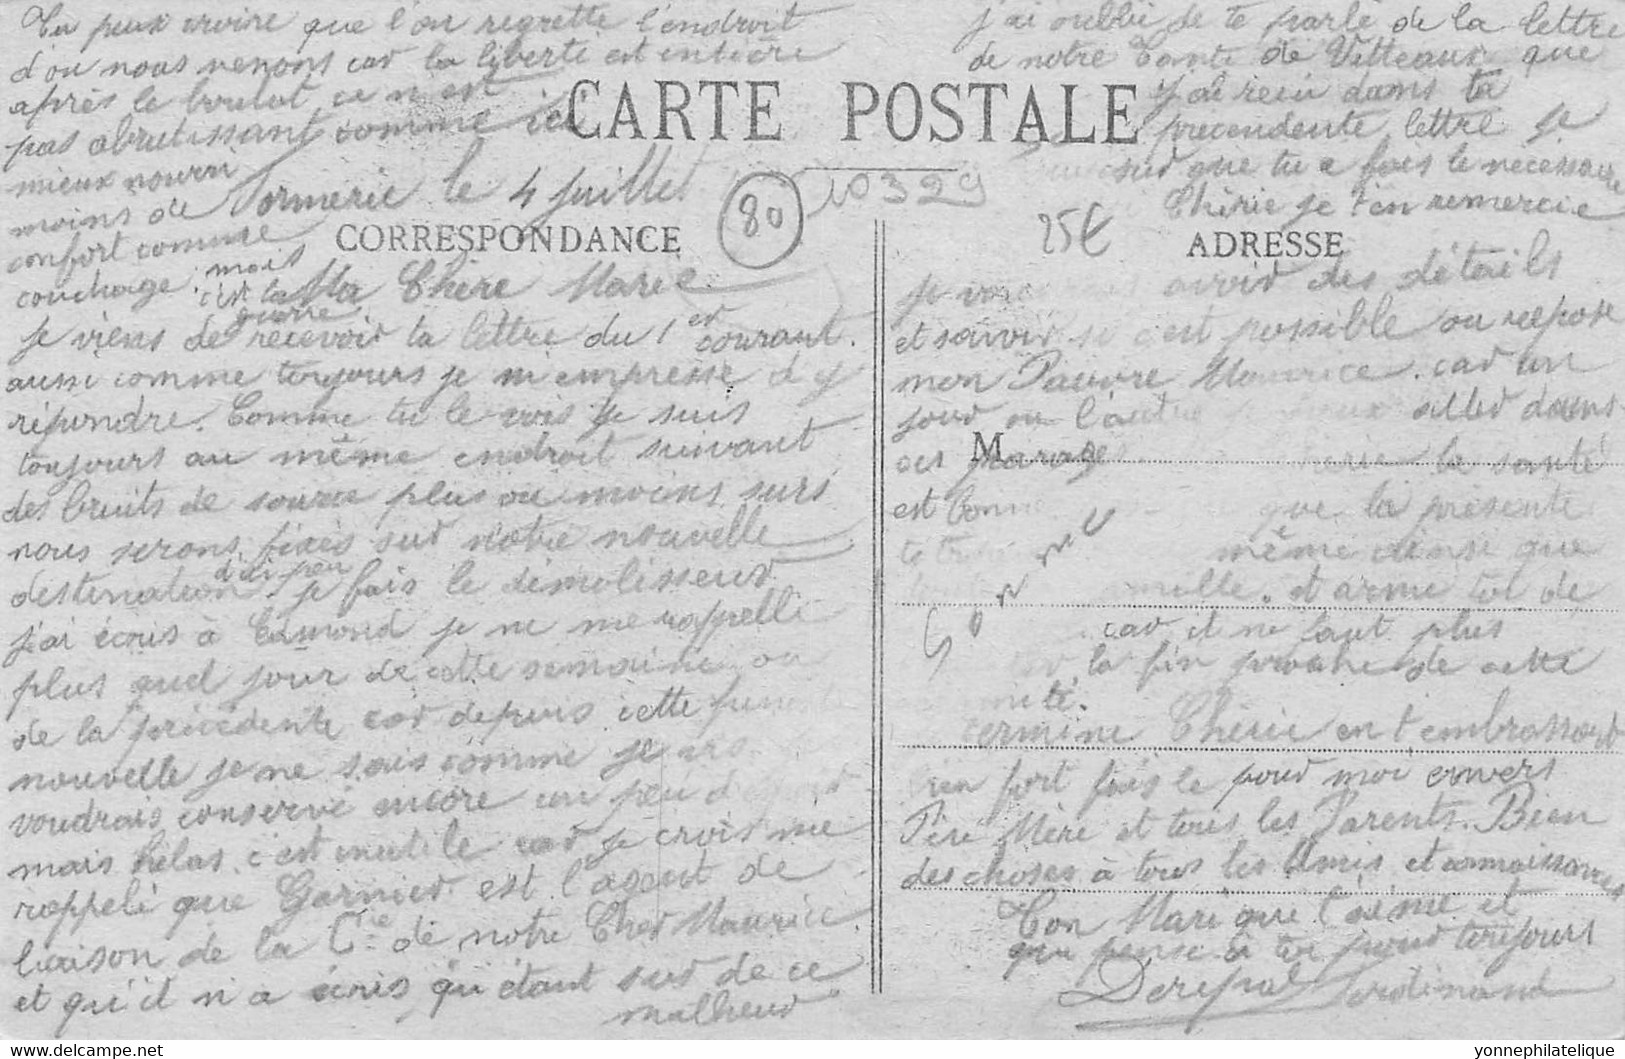 Tu peux croire que l'on regrette l'endroit
d'ou nous venons car la liberté est entière
après le boulot ce n'est
pas abrutissant comme ici
mieux nourri
moins de
confort comme
couchage. mais
c'est la
guerre
j'ai oublié de te parlé de la lettre
de notre Tante de Vitteaux que
j'ai reçu dans ta
precendente lettre je
sur que tu a fais le nécessaire
Chérie je t'en remercie
CARTE POSTALE
Formerie le 4 juillet
80
10329
25€
CORRESPONDANCE
ADRESSE
Ma Chère Marie
je viens de recevoir ta lettre du 1er courant.
aussi comme toujours je m'empresse d'y
répondre. Comme tu le vois je suis
toujours au même endroit suivant
des bruits de source plus ou moins surs
nous serons fixés sur notre nouvelle
destination d'ici peu je fais le démolisseur
j'ai écris à Edmond je ne me rappelle
plus quel jour de cette semaine ou
de la précédente car depuis cette funeste
nouvelle je ne sais comme je
voudrais conservé encore un peu d'espoir
mais hélas c'est inutile car je crois me
rappelé que Garnier est l'agent de
liaison de la Cie de notre Cher Maurice
et qu'il n'a écris qu'étant sur de ce
malheur
je avoir des détails
et savoir si c'est possible ou repose
mon Pauvre Maurice. car un
jour ou l'autre je peux aller dans
ces parages Chérie la santé
est bonne que la présente
te même ainsi que
famille. et arme toi de
car il ne faut plus
la fin proche de cette
termine Chérie en t'embrassant
bien fort fais le pour moi envers
Père Mère et tous les Parents. Bien
des choses à tous les Amis et connaissances
Ton Mari qui t'aime et
qui pense à toi pour toujours
Ferdinand
M
yonnephilatelique
© www.delcampe.net